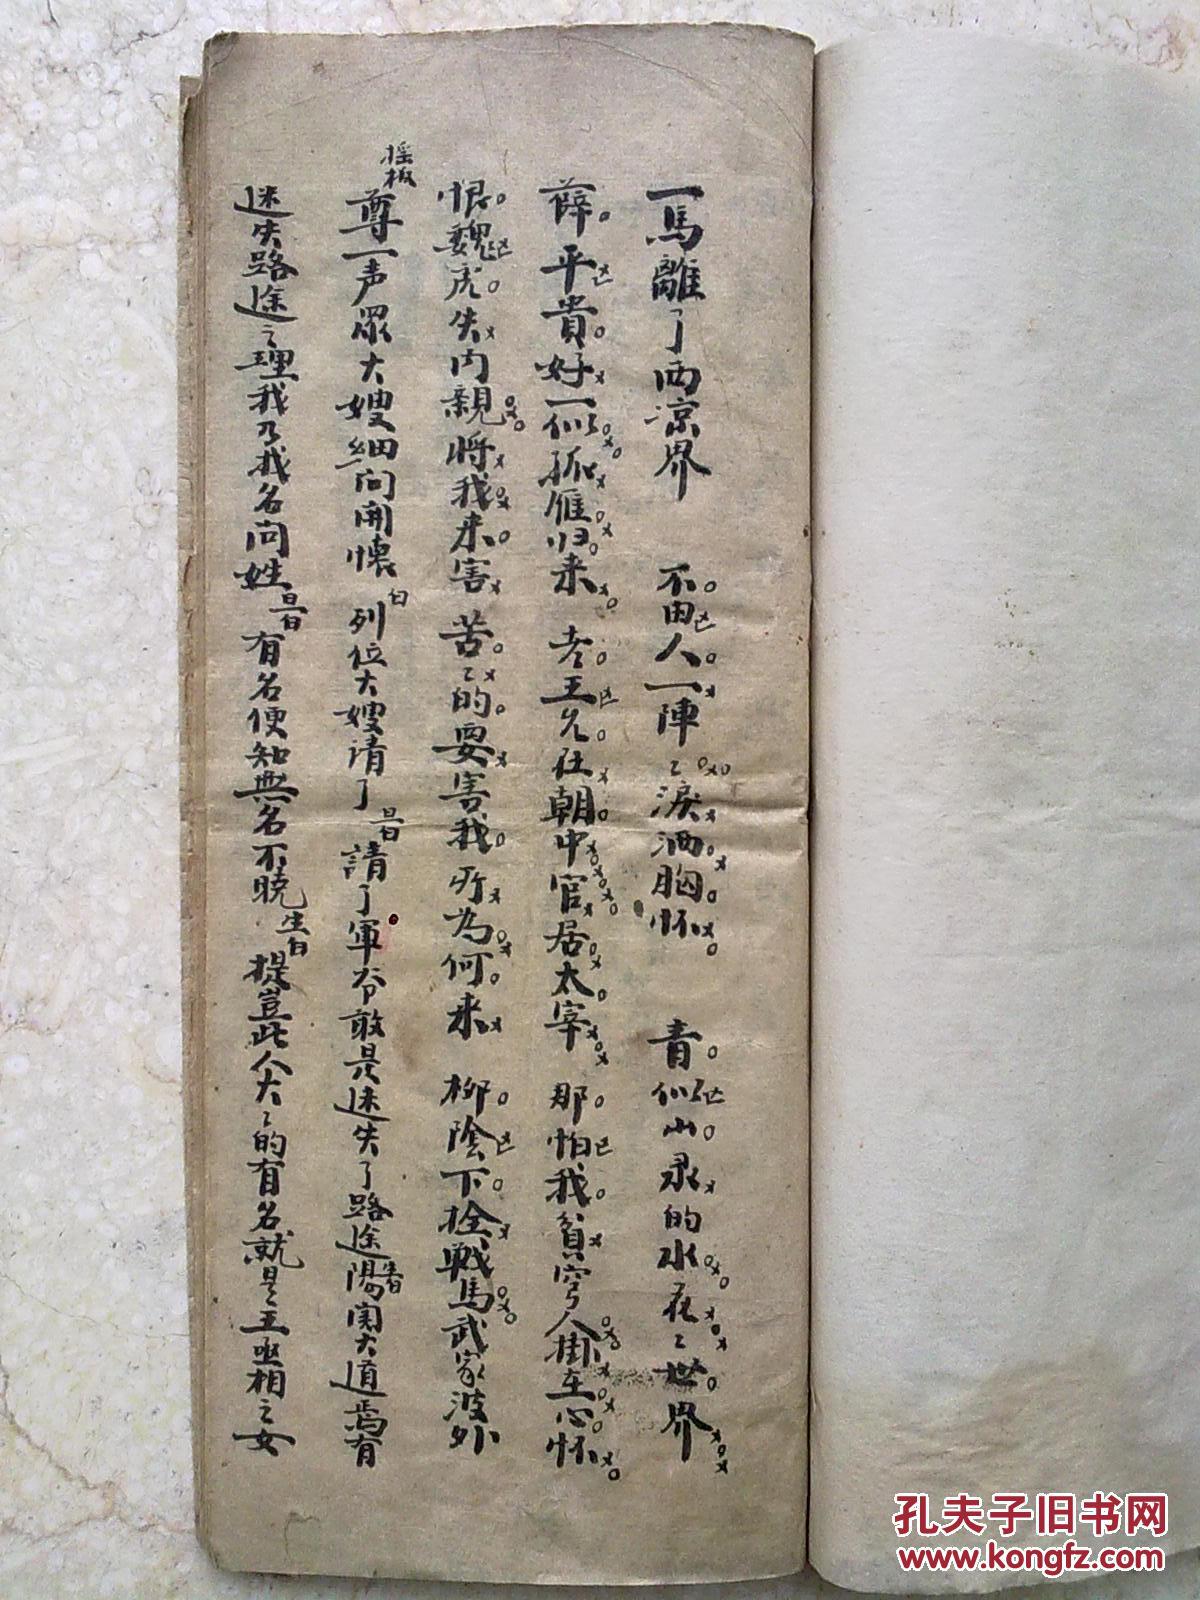 一馬離了西凉界 不由人一陣〻淚洒胸怀 青似山录的水花〻世界
薛平貴好一似孤雁归来 老王允在朝中官居太宰 那怕我貧穷人掛在心怀
恨魏虎失内親将我来害 苦〻的要害我所为何来 柳陰下拴戰馬武家波外
摇板
尊一声眾大嫂細问開懷 白 列位大嫂请了 旦白 請了軍爷敢是迷失了路途 生白 陽関大道焉有
迷失路途之理我乃找名问姓 旦白 有名便知無名不晓 生白 提豈此人大〻的有名就是王丞相之女
孔夫子旧书网
www.kongfz.com